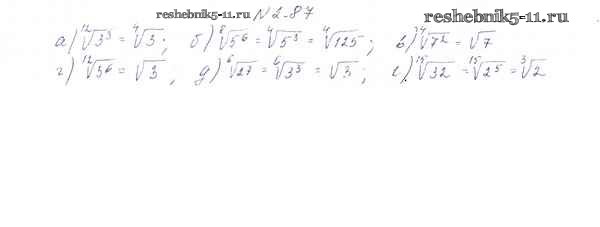 reshebnik5-11.ru № 2.87 reshebnik5-11.ru
а) ¹²√3³ = ⁴√3; б) ⁸√5⁶ = ⁴√5³ = ⁴√125; в) ⁴√7² = √7
г) ¹²√3⁶ = √3; д) ⁶√27 = ⁶√3³ = √3; е) ¹⁵√32 = ¹⁵√2⁵ = ³√2